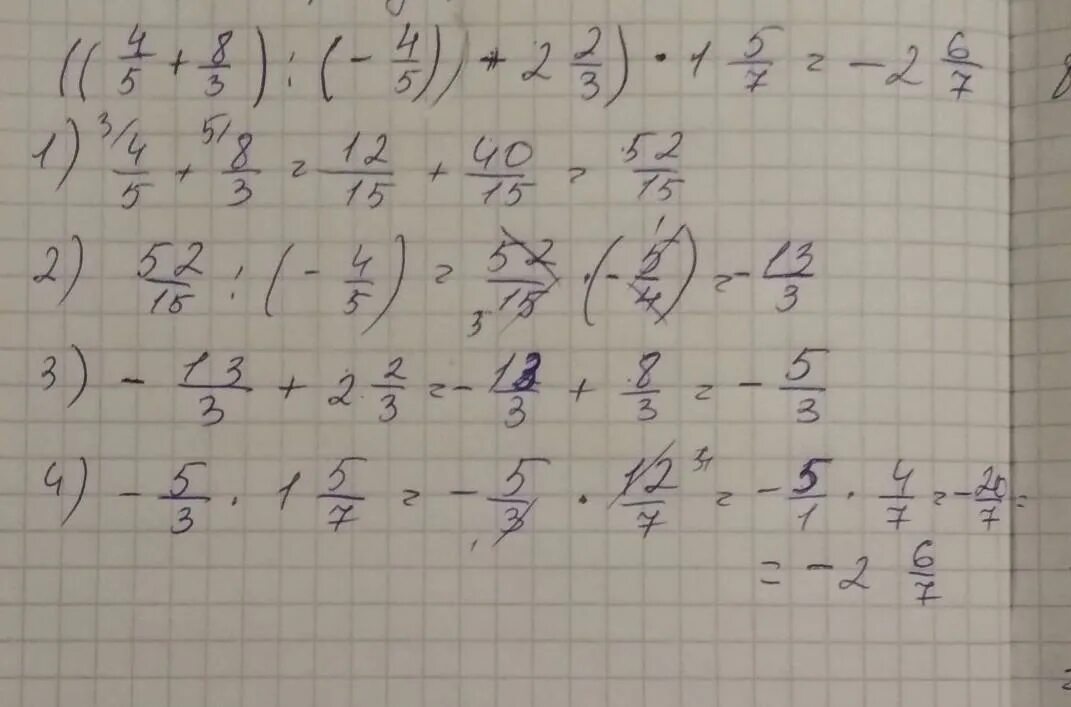 ((4/5 + 8/3) : (- 4/5)) + 2 2/3) · 1 5/7 = - 2 6/7
1) 3/ 4/5 + 5/ 8/3 = 12/15 + 40/15 = 52/15
2) 52/15 : (- 4/5) = 52/15 3 · (- 5/4) 1 = - 13/3
3) - 13/3 + 2 2/3 = - 13/3 + 8/3 = - 5/3
4) - 5/3 · 1 5/7 = - 5/3 1 · 12/7 = - 5/1 · 4/7 = - 20/7 =
= - 2 6/7